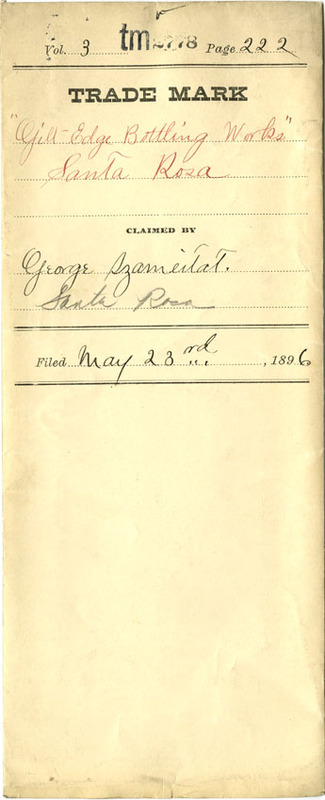 Vol. 3 tm 2778 Page 222
TRADE MARK
"Gilt-Edge Bottling Works"
Santa Rosa
CLAIMED BY
George Szameitat.
Santa Rosa
Filed May 23rd, 1896